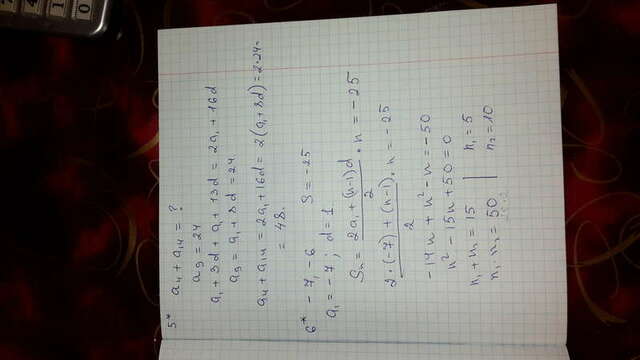 5* a₄ + a₁₄ = ?
a₉ = 24
a₁ + 3d + a₁ + 13d = 2a₁ + 16d
a₉ = a₁ + 8d = 24
a₄ + a₁₄ = 2a₁ + 16d = 2(a₁ + 8d) = 2·24=
= 48.
6* -7, -6 S = -25
a₁ = -7; d = 1
Sₙ = (2a₁ + (n-1)d)/2 · n = -25
(2·(-7) + (n-1))/2 · n = -25
-14n + n² - n = -50
n² - 15n + 50 = 0
n₁ + n₂ = 15 | n₁ = 5
n₁ · n₂ = 50 | n₂ = 10